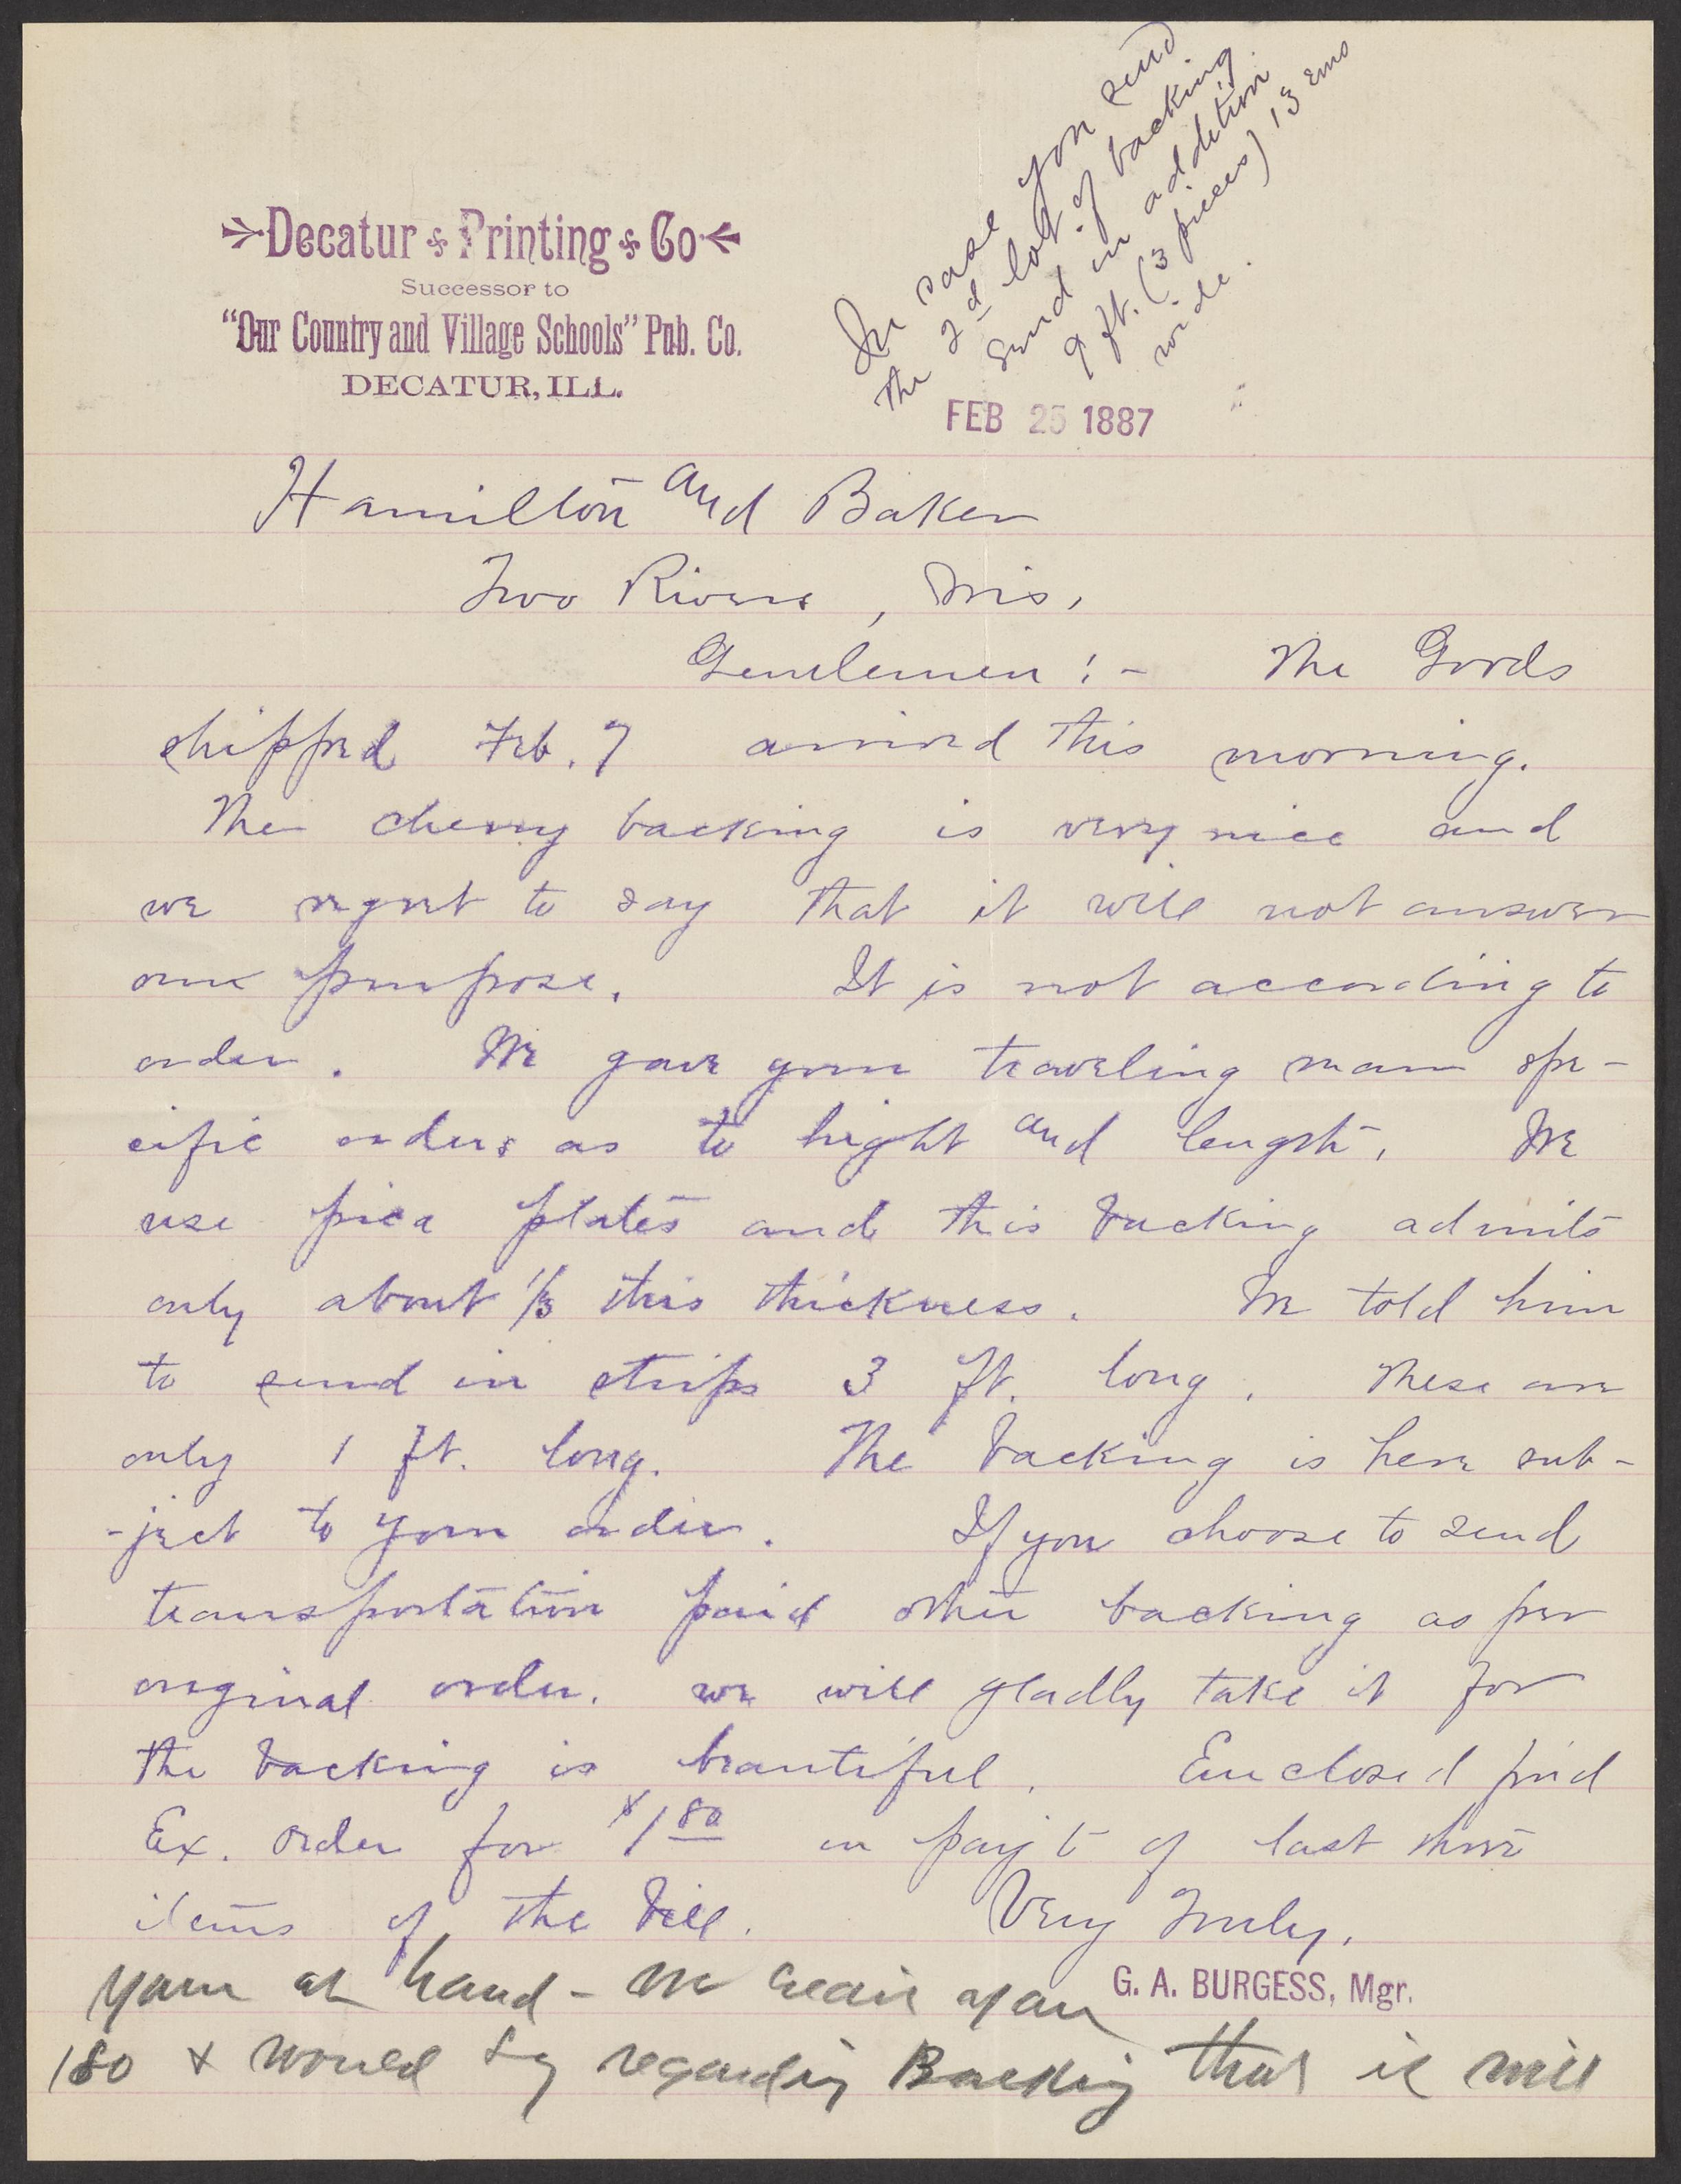 Decatur Printing Co
Successor to
"Our Country and Village Schools" Pub. Co.
DECATUR, ILL.
In case you send
the 2d lot of backing
send in addition
9 ft. (3 pieces) 13 ems
wide.
FEB 25 1887
Hamilton and Baker
Two Rivers, Wis.
Gentlemen:- The Goods
shipped Feb. 7 arrived this morning.
The cherry backing is very nice and
we regret to say that it will not answer
our purpose. It is not according to
order. We gave your traveling man spe-
cific orders as to hight and length. We
use pica plates and this backing admits
only about 1/3 this thickness. We told him
to send in strips 3 ft. long. These are
only 1 ft. long. The backing is here sub-
-ject to your order. If you choose to send
transportation paid other backing as per
original order. we will gladly take it for
the backing is beautiful. Enclosed find
Ex. Order for $1 80 in pay't of last three
items of the bill. Very Truly,
G. A. BURGESS, Mgr.
Yours at hand - we credit you
180 & would say regarding Backing that it will